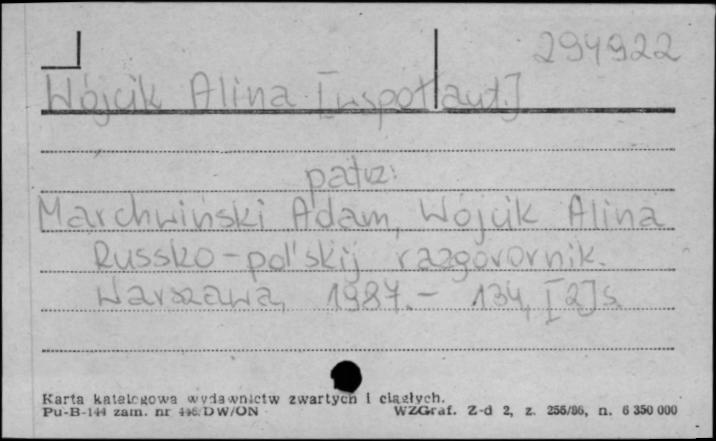 294922
Wójcik Alina [współaut.]
patrz:
Marchwiński Adam, Wójcik Alina
Russko-pol'skij razgovornik.
Warszawa, 1987.- 134, [2]s.
Karta katalogowa wydawnictw zwartych i ciągłych.
Pu-B-144 zam. nr 446/DW/ON WZGraf. Z-d 2, z. 255/86, n. 6 350 000